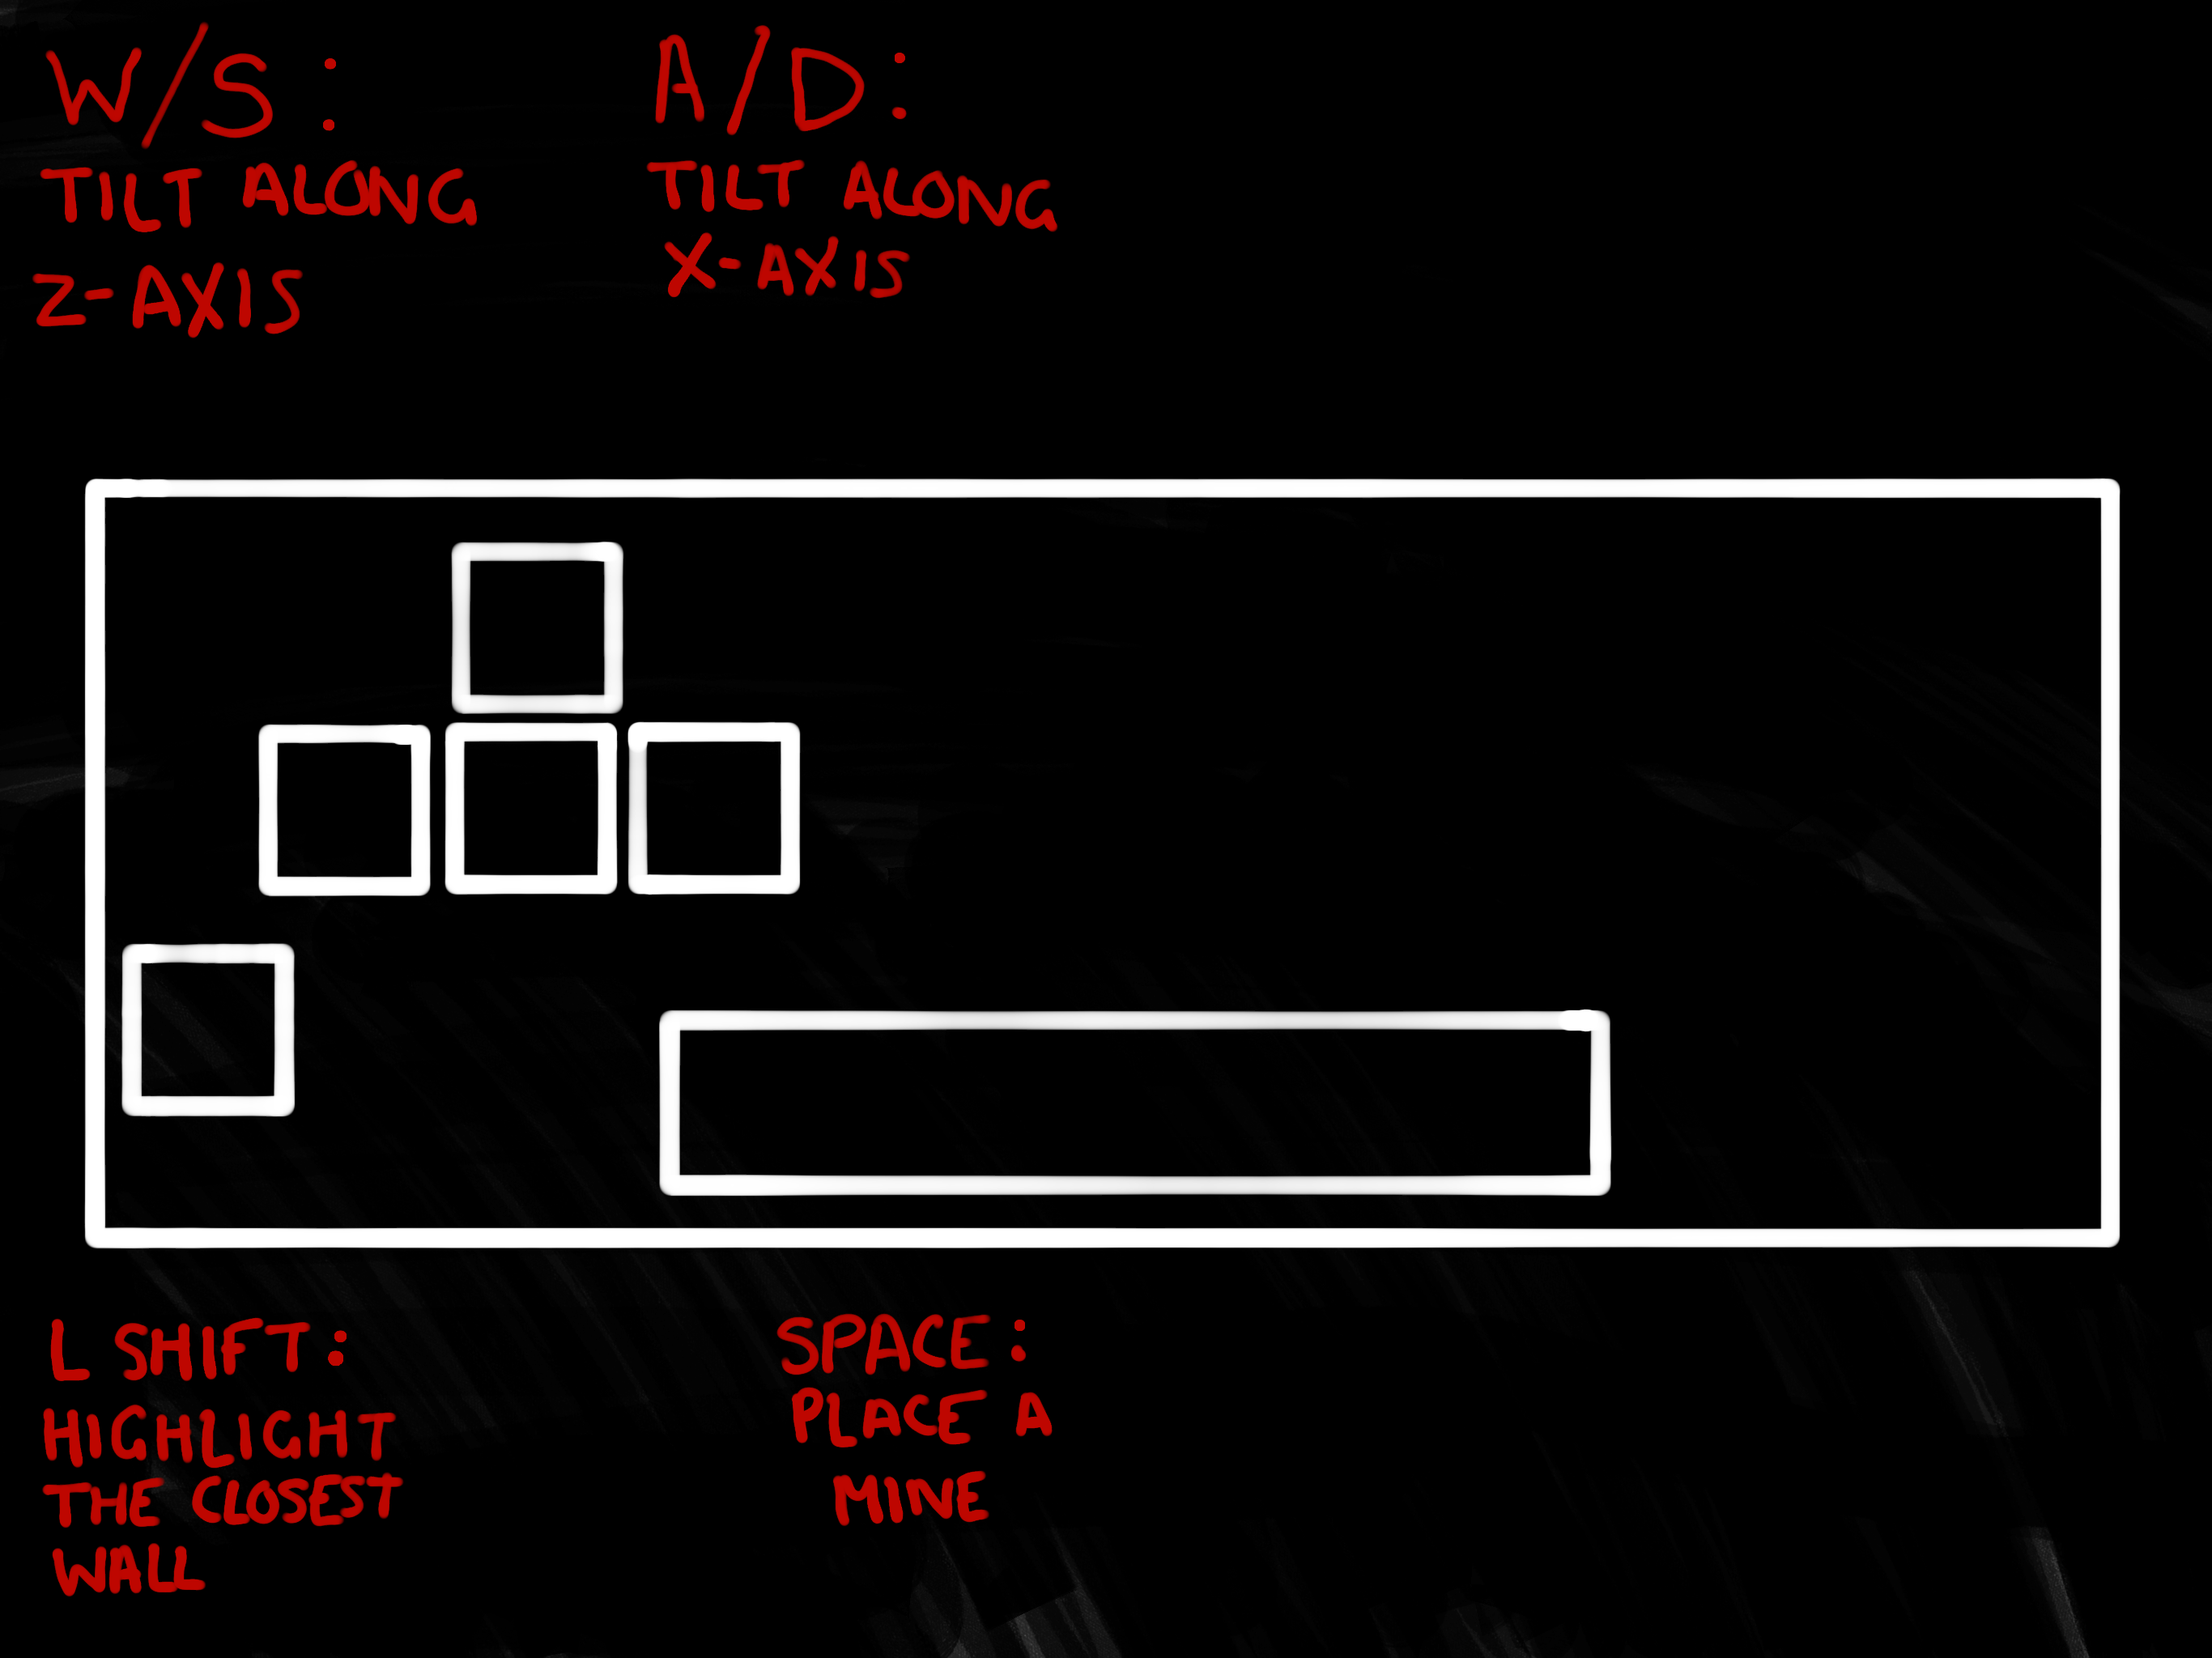 W/S:
TILT ALONG
Z-AXIS
A/D:
TILT ALONG
X-AXIS
L SHIFT:
HIGHLIGHT
THE CLOSEST
WALL
SPACE:
PLACE A
MINE